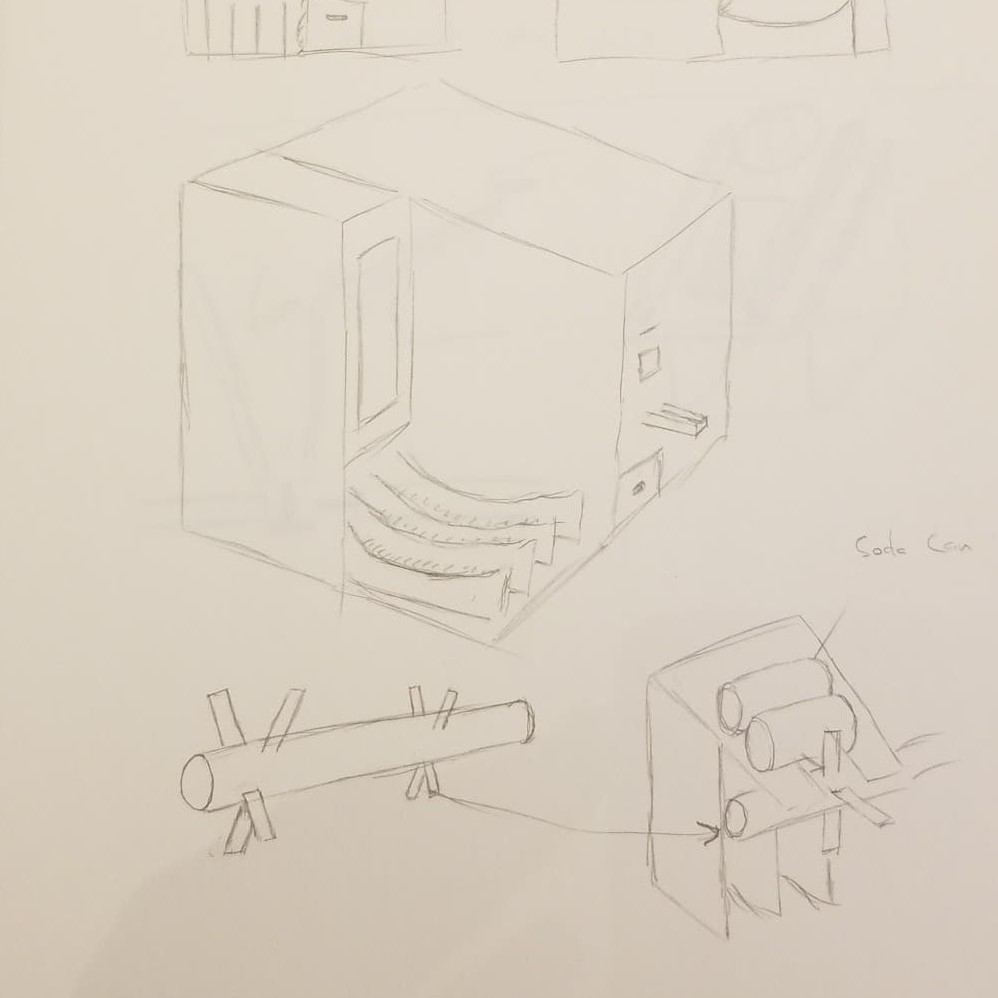 Soda Can